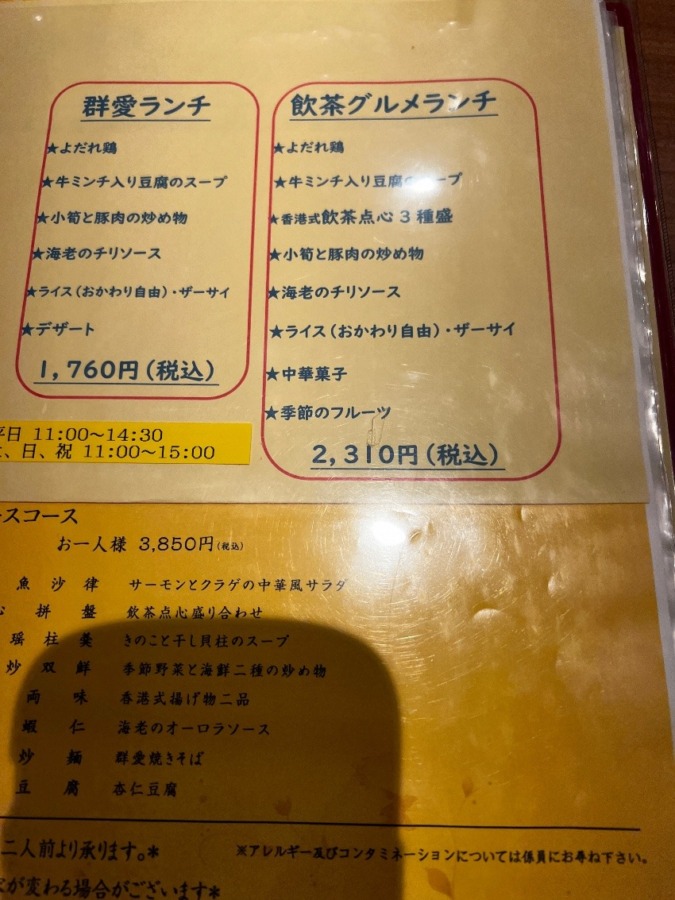 群愛ランチ
★よだれ鶏
★牛ミンチ入り豆腐のスープ
★小筍と豚肉の炒め物
★海老のチリソース
★ライス(おかわり自由)・ザーサイ
★デザート
1,760円(税込)
飲茶グルメランチ
★よだれ鶏
★牛ミンチ入り豆腐のスープ
★香港式飲茶点心3種盛
★小筍と豚肉の炒め物
★海老のチリソース
★ライス(おかわり自由)・ザーサイ
★中華菓子
★季節のフルーツ
2,310円(税込)
平日 11:00~14:30
、日、祝 11:00~15:00
スコース
お一人様 3,850円(税込)
魚沙律 サーモンとクラゲの中華風サラダ
拼盤 飲茶点心盛り合わせ
瑶柱羹 きのこと干し貝柱のスープ
炒双鮮 季節野菜と海鮮二種の炒め物
両味 香港式揚げ物二品
蝦仁 海老のオーロラソース
炒麺 群愛焼きそば
豆腐 杏仁豆腐
二人前より承ります。*
※アレルギー及びコンタミネーションについては係員にお尋ね下さい。
が変わる場合がございます*